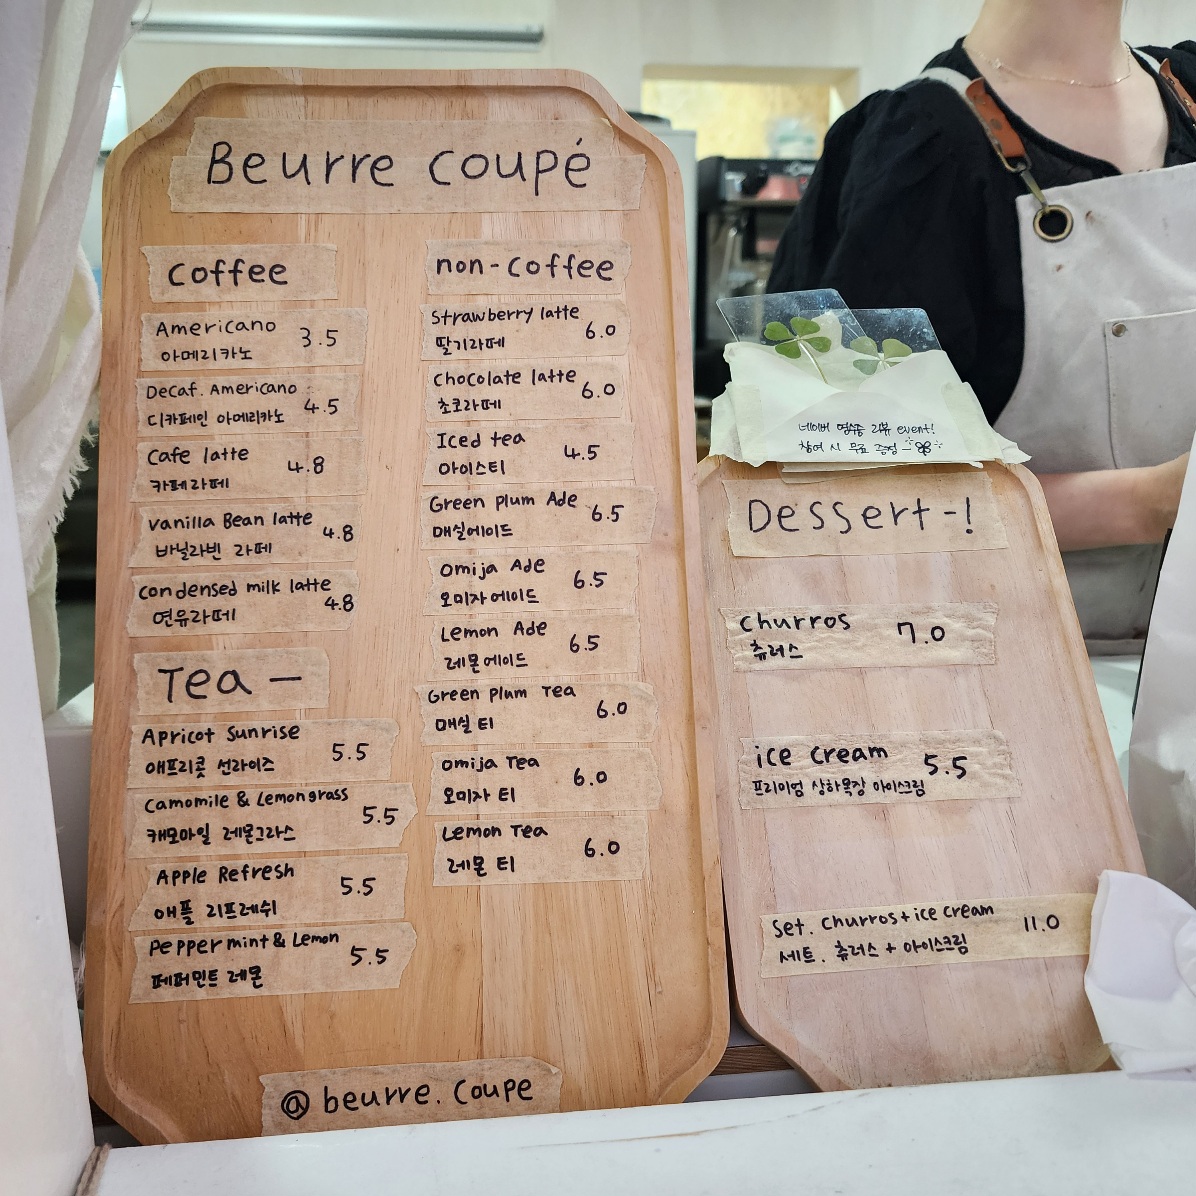 Beurre coupé
coffee
Americano 3.5
아메리카노
Decaf. Americano 4.5
디카페인 아메리카노
Cafe latte 4.8
카페라떼
vanilla Bean latte 4.8
바닐라빈 라떼
condensed milk latte 4.8
연유라떼
Tea -
Apricot Sunrise 5.5
애프리콧 선라이즈
Camomile & Lemongrass 5.5
캐모마일 레몬그라스
Apple Refresh 5.5
애플 리프레쉬
Peppermint & Lemon 5.5
페퍼민트 레몬
non-coffee
Strawberry latte 6.0
딸기라떼
Chocolate latte 6.0
초코라떼
Iced tea 4.5
아이스티
Green plum Ade 6.5
매실에이드
Omija Ade 6.5
오미자에이드
Lemon Ade 6.5
레몬에이드
Green plum Tea 6.0
매실 티
Omija Tea 6.0
오미자 티
Lemon Tea 6.0
레몬 티
@ beurre. coupe
네이버 영수증 리뷰 event!
참여 시 무료 증정 -
Dessert -!
churros 7.0
츄러스
ice cream 5.5
프리미엄 상하목장 아이스크림
Set. Churros + ice cream 11.0
세트. 츄러스 + 아이스크림